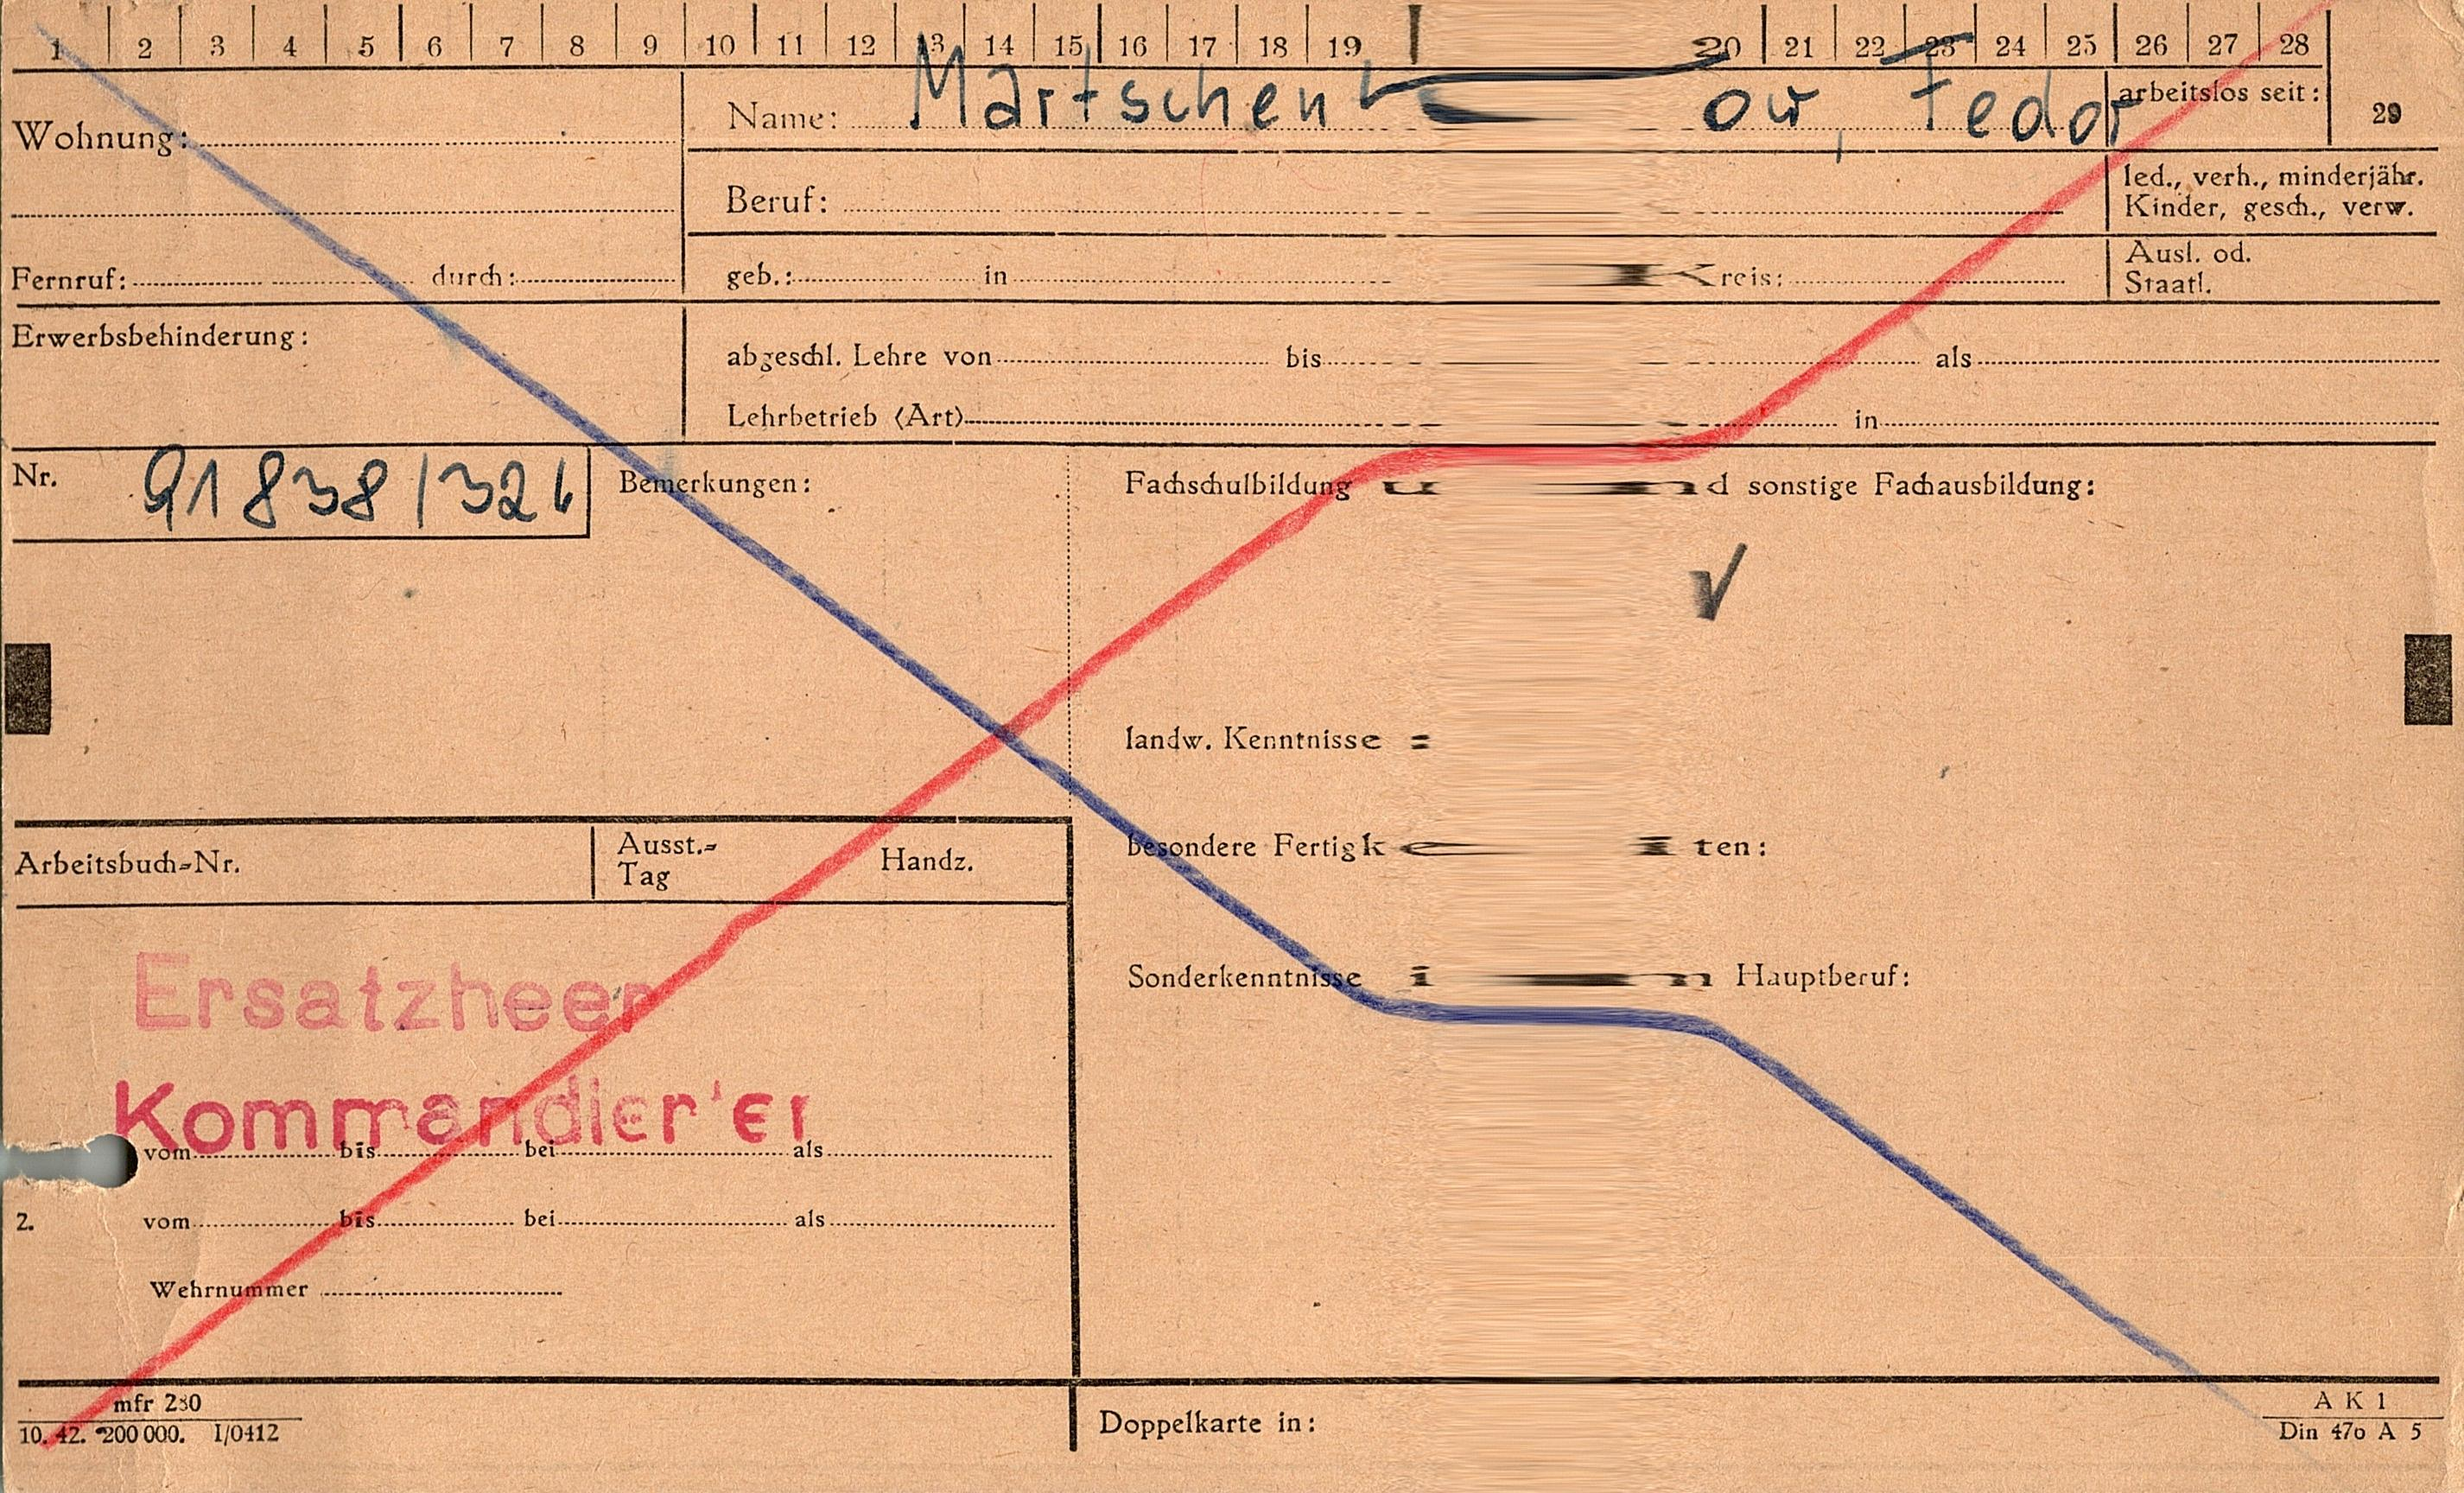 1 2 3 4 5 6 7 8 9 10 11 12 13 14 15 16 17 18 19 20 21 22 23 24 25 26 27 28
Wohnung:
Name: Fedor
arbeitslos seit:
29
Beruf:
led., verh., minderjähr.
Kinder, gesch., verw.
Fernruf: durch:
geb.: in Kreis:
Ausl. od.
Staatl.
Erwerbsbehinderung:
abgeschl. Lehre von bis als
Lehrbetrieb (Art) in
Nr.
Bemerkungen:
Fachschulbildung und sonstige Fachausbildung:
landw. Kenntnisse
besondere Fertigkeiten:
Arbeitsbuch-Nr.
Ausst.-
Tag
Handz.
Sonderkenntnisse im Hauptberuf:
Ersatzheer
vom bis bei als
2. vom bis bei als
Wehrnummer
mfr 230
10. 42. 200 000. I/0412
Doppelkarte in:
A K 1
Din 476 A 5